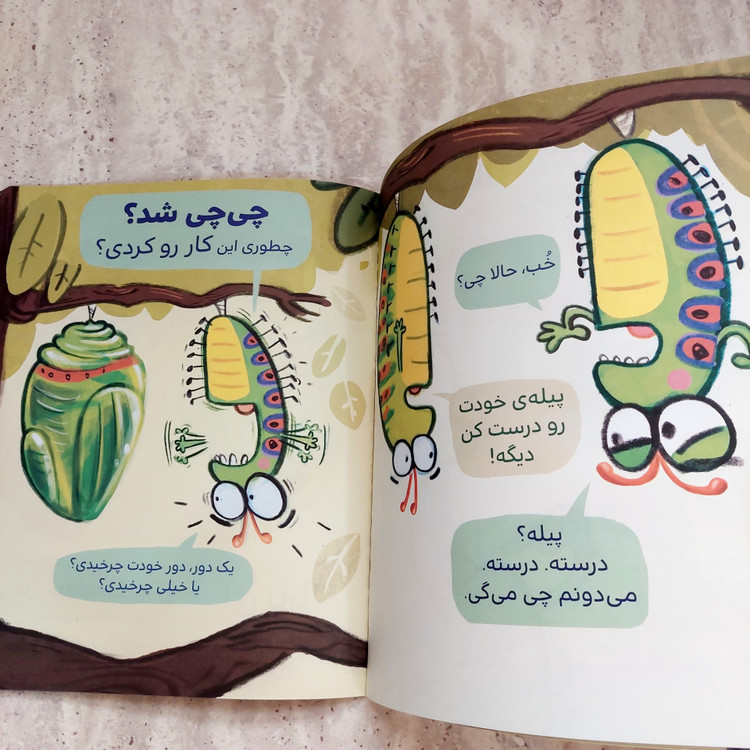 خُب، حالا چی؟
پیله‌ی خودت
رو درست کن
دیگه!
پیله؟
درسته. درسته.
می‌دونم چی می‌گی.
چی‌چی شد؟
چطوری این کار رو کردی؟
یک دور، دور خودت چرخیدی؟
یا خیلی چرخیدی؟